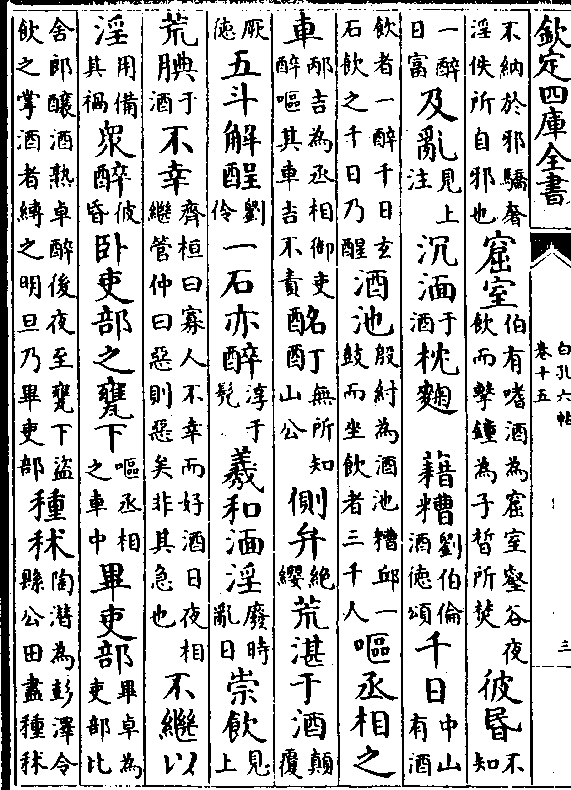 欽定四庫全書
白孔六帖
卷十五
三
不納於邪驕奢淫佚所自邪也窟室伯有嗜酒為窟室壑谷夜飲而擊鐘為子晳所焚彼昏不知
一醉日富及亂見上注沉湎于酒枕麴 藉糟劉伯倫酒德頌千日中山有酒
飲者一醉千日玄石飲之千日乃醒酒池殷紂為酒池糟邱一鼓而坐飲者三千人嘔丞相之
車邴吉為丞相御吏醉嘔其車吉不責酩酊無所知山公側弁絶纓荒湛于酒顛覆
厥德五斗解酲劉伶一石亦醉淳于髡羲和湎淫廢時亂日崇飲見上
荒腆于酒不幸齊桓曰寡人不幸而好酒日夜相繼管仲曰惡則惡矣非其急也不繼以
淫用備其禍眾醉彼昏卧吏部之甕下嘔丞相之車中畢吏部畢卓為吏部比
舍郎釀酒熟卓醉後夜至甕下盜飲之掌酒者縛之明旦乃畢吏部種秫陶潛為彭澤令縣公田盡種秫